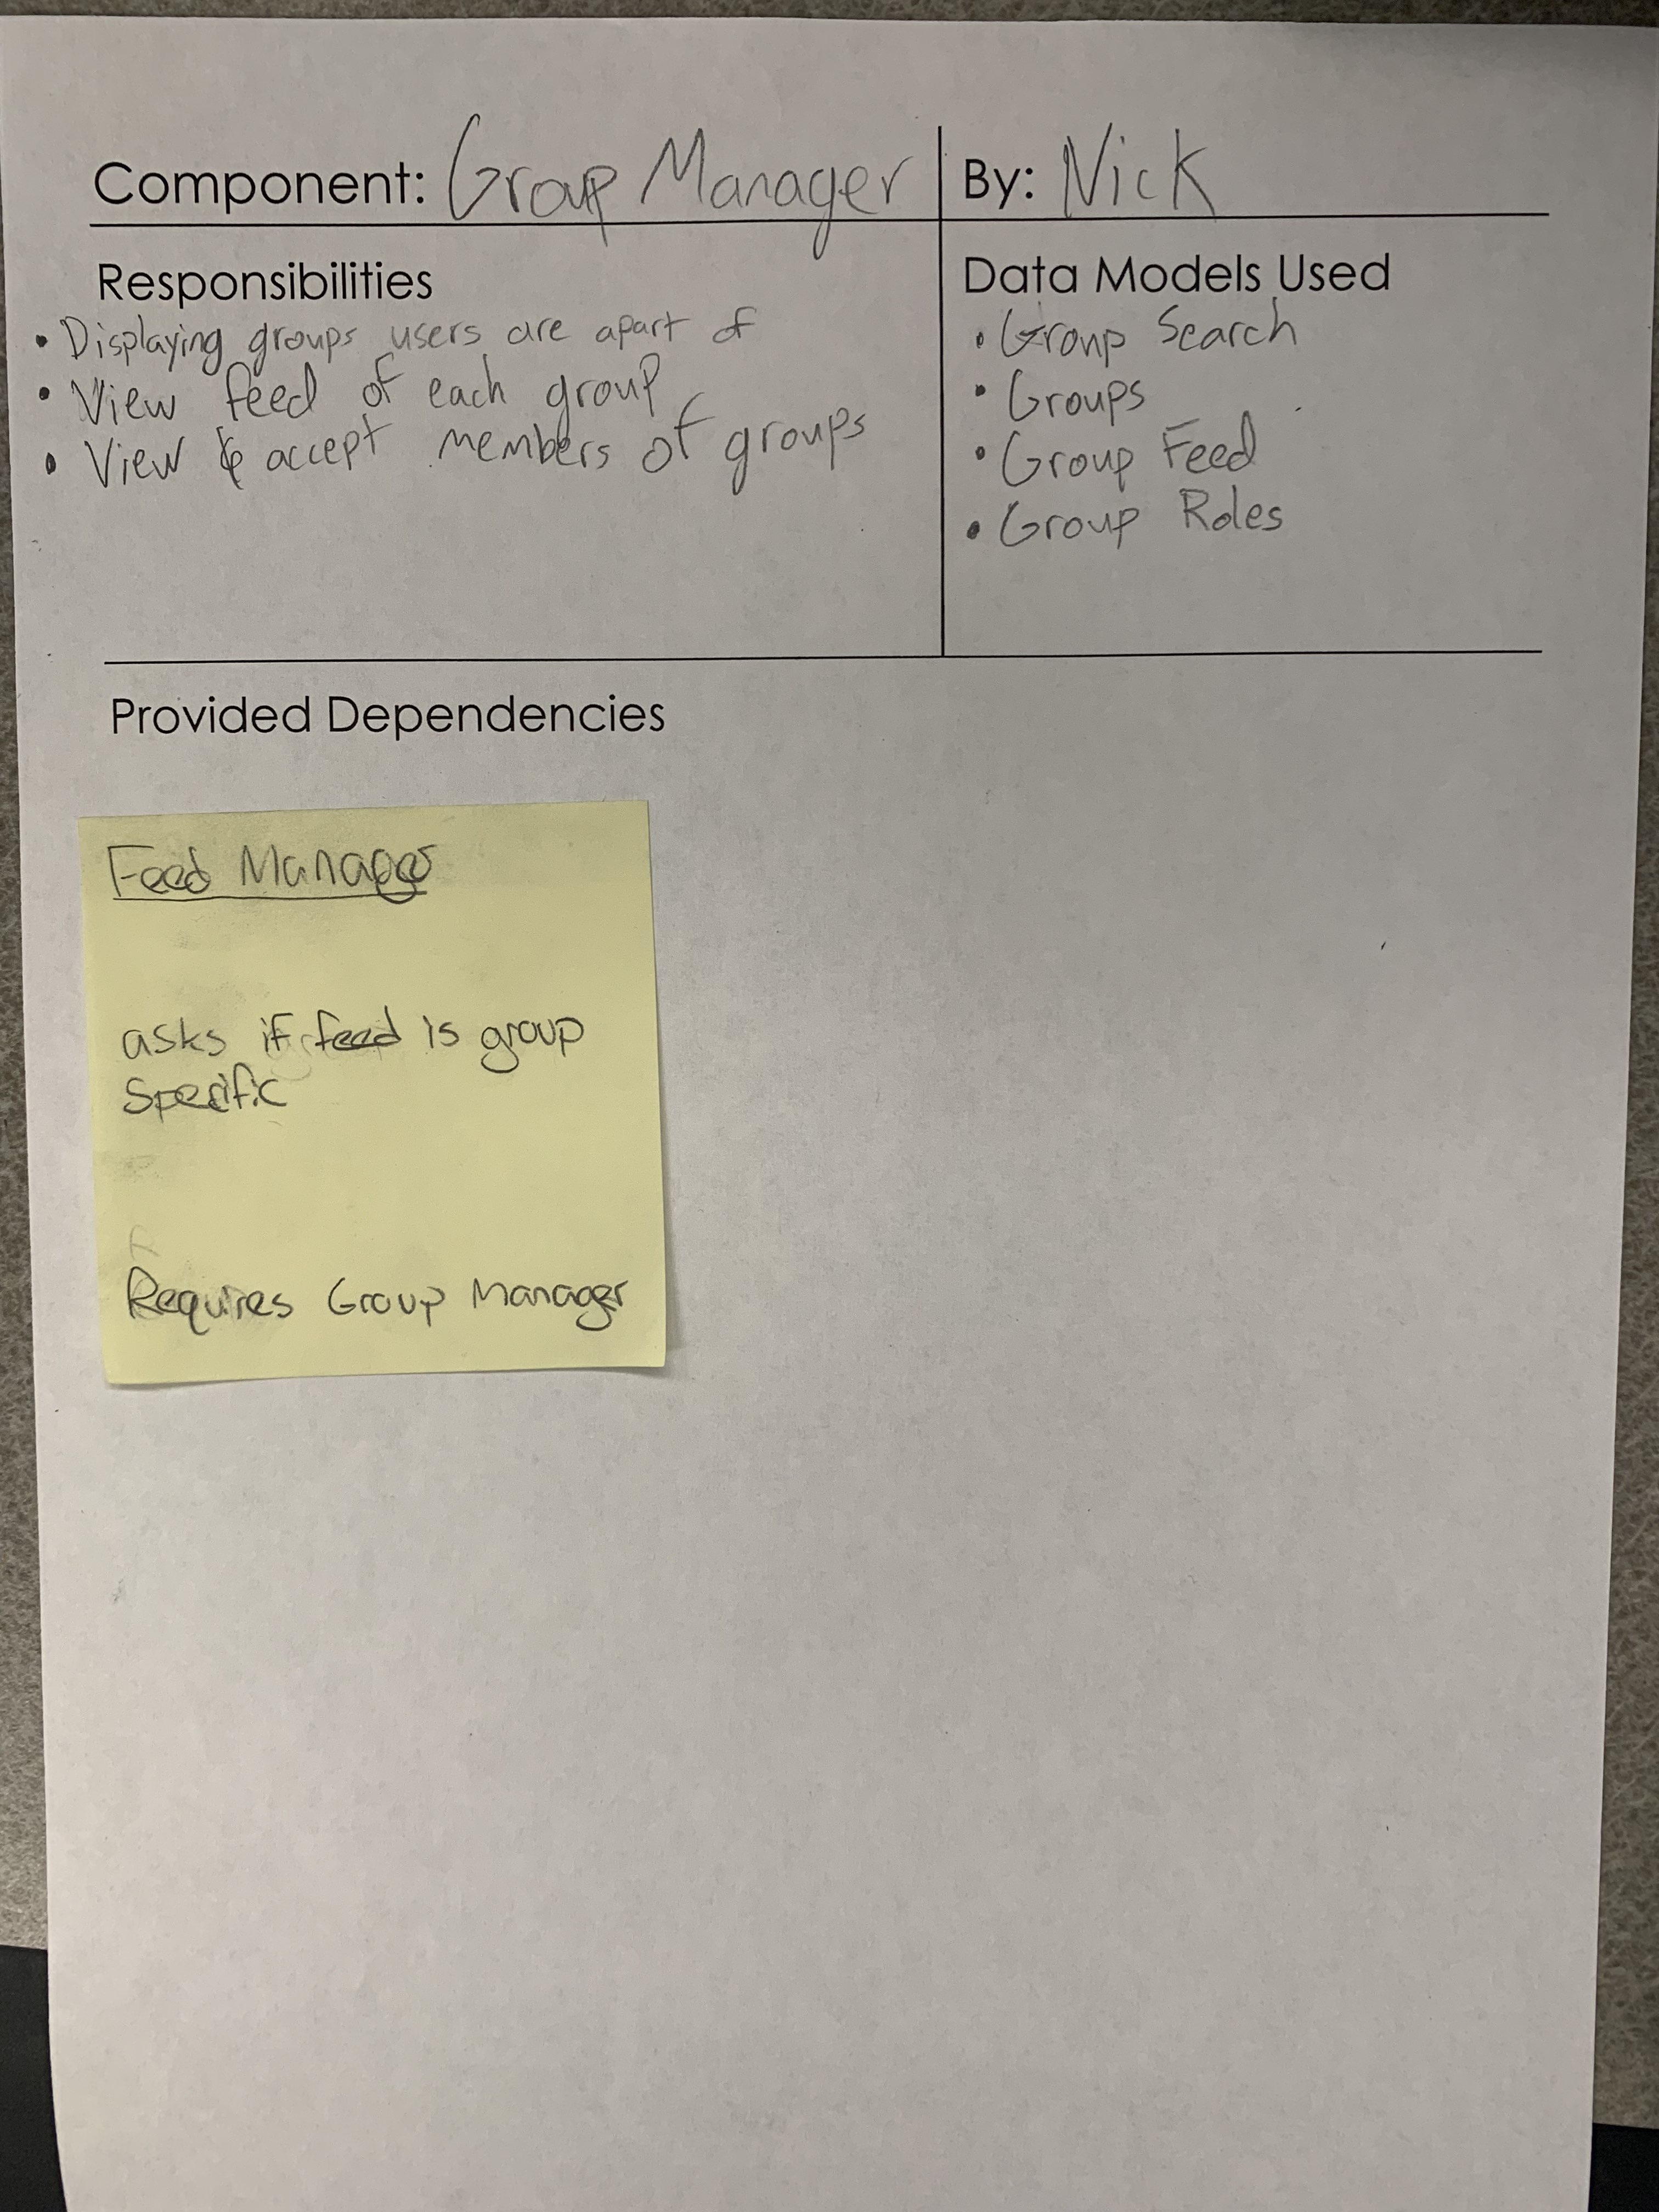 Component: Group Manager
By: Nick
Responsibilities
• Displaying groups users are apart of
• View feed of each group
• View & accept members of groups
Data Models Used
• Group Search
• Groups
• Group Feed
• Group Roles
Provided Dependencies
Feed Manager
asks if feed is group
specific
Requires Group Manager